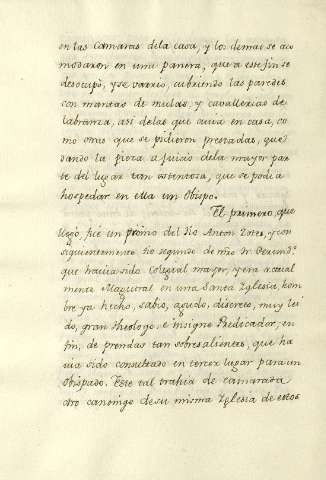 en las Camaras de la casa, y los demas se aco
modaron en una panera, que a este fin se
desocupò, y se varrio, cubriendo las paredes
con mantas de mulas, y cavallerias de
labranza, asi de las que avia en casa, co
mo otras que se pidieron prestadas, que
dando la pieza a juicio de la mayor par
te del lugar tan ostentosa, que se podia
hospedar en ella un Obispo.
El primero, que
llegò, fue un primo del tio Anton Zotes, y con
siguientemente tio segundo de nrò Fr. Gerund.º
que havia sido Colegial mayor, y era actual
mente Magistral en una Santa Iglesia, hom
bre ya hecho, sabio, agudo, discreto, muy lei
do, gran Theologo, e insigne Predicador, en
fin, de prendas tan sobresalientes, que ha
via sido consultado en tercer lugar para un
Obispado. Este tal trahia de camarada
otro canonigo de su misma Iglesia de estos